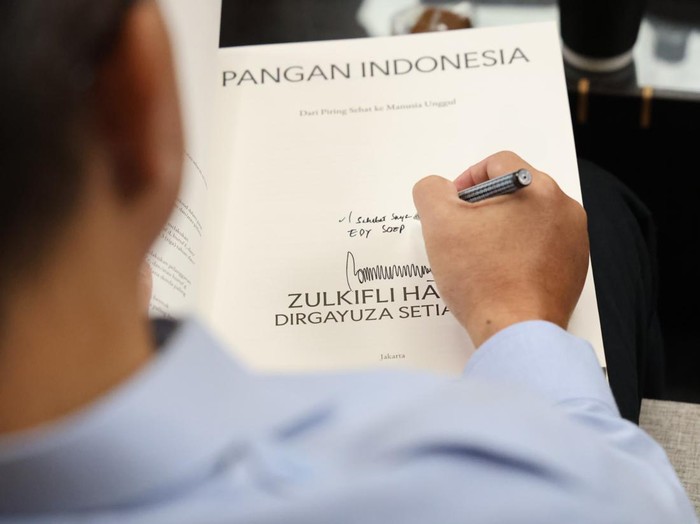 PANGAN INDONESIA
Dari Piring Sehat ke Manusia Unggul
Sahabat Saya
EDY SOEP
ZULKIFLI HA
DIRGAYUZA SETIA
Jakarta